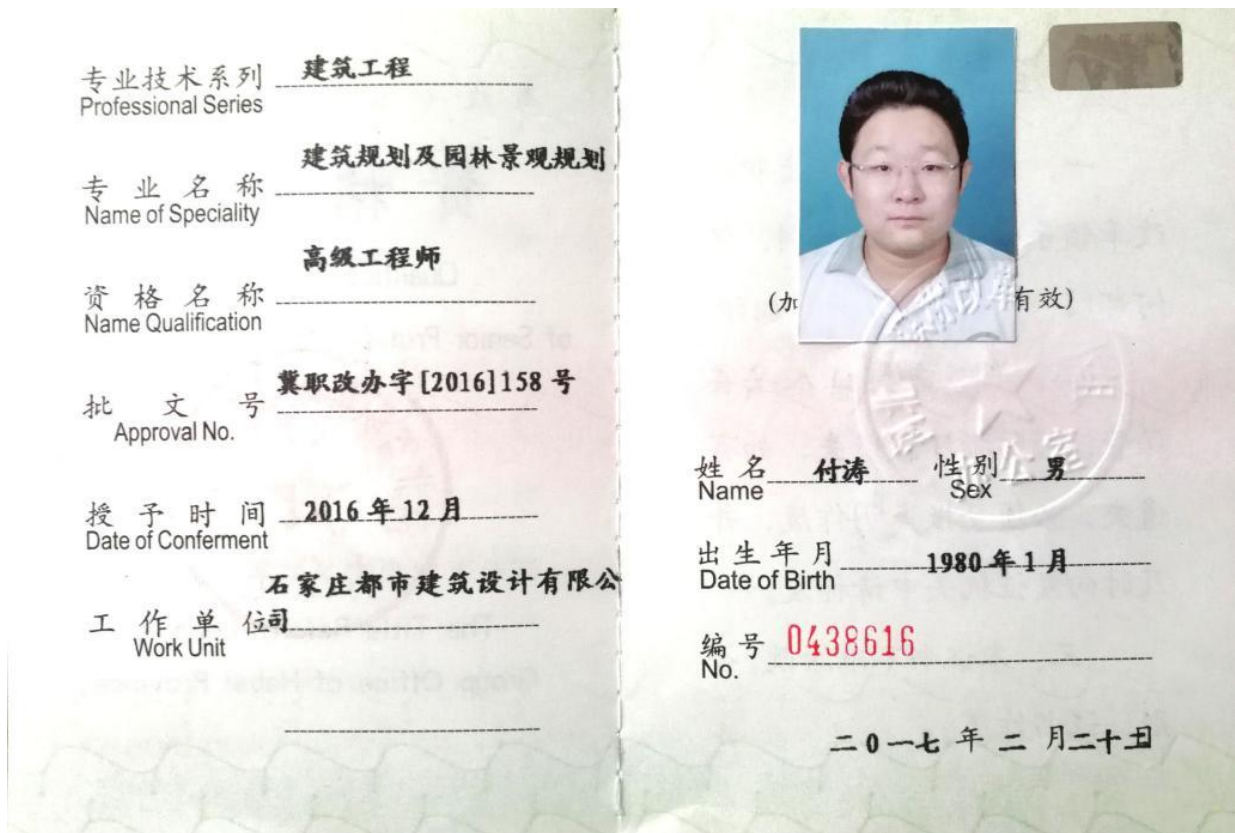 专业技术系列 建筑工程
Professional Series
建筑规划及园林景观规划
专业名称
Name of Speciality
高级工程师
资格名称
Name Qualification
冀职改办字[2016]158号
批文号
Approval No.
授予时间 2016年12月
Date of Conferment
石家庄都市建筑设计有限公
工作单位司
Work Unit
(加 有效)
姓名 付涛 性别 男
Name Sex
出生年月 1980年1月
Date of Birth
编号 0438616
No.
二0一七年二月二十五日